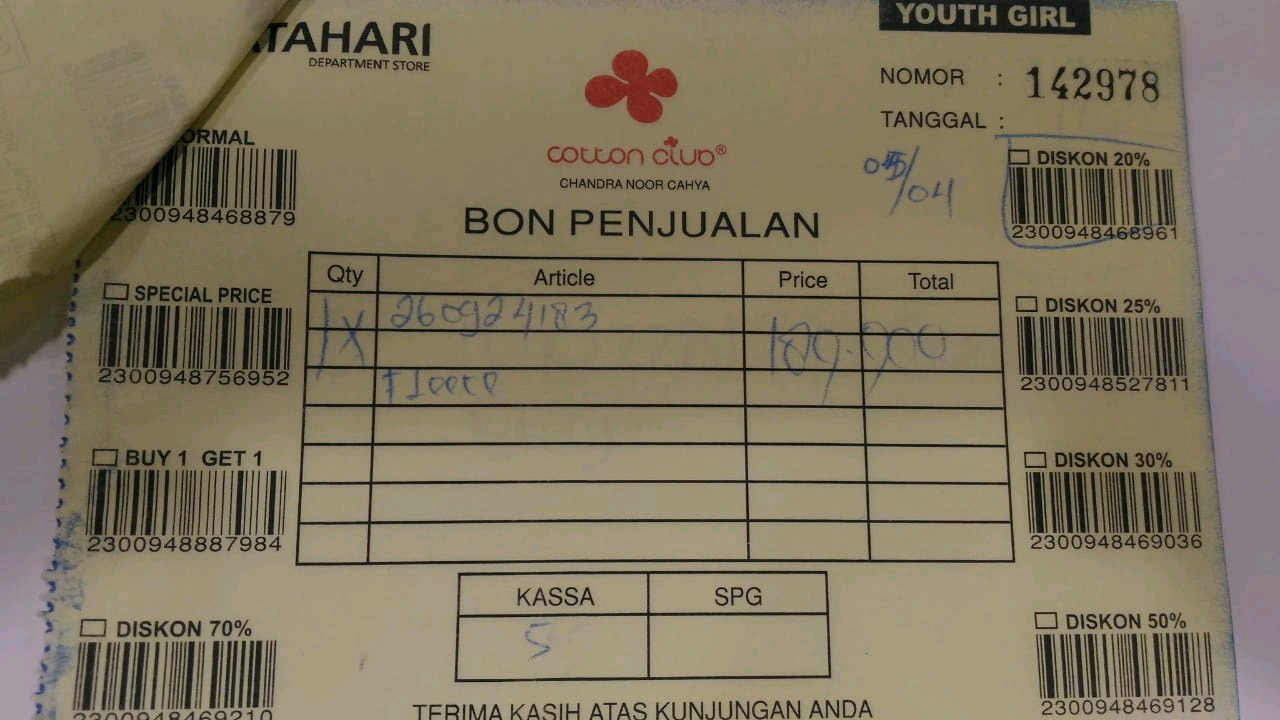 YOUTH GIRL
ATAHARI
DEPARTMENT STORE
NOMOR : 142978
TANGGAL :
05/04
cotton club®
CHANDRA NOOR CAHYA
BON PENJUALAN
ORMAL
2300948468879
DISKON 20%
2300948468961
SPECIAL PRICE
2300948756952
DISKON 25%
2300948527811
BUY 1 GET 1
2300948887984
DISKON 30%
2300948469036
DISKON 70%
2300948469210
DISKON 50%
2300948469128
Qty Article Price Total
1X 260924183 189.900
KASSA SPG
5
TERIMA KASIH ATAS KUNJUNGAN ANDA